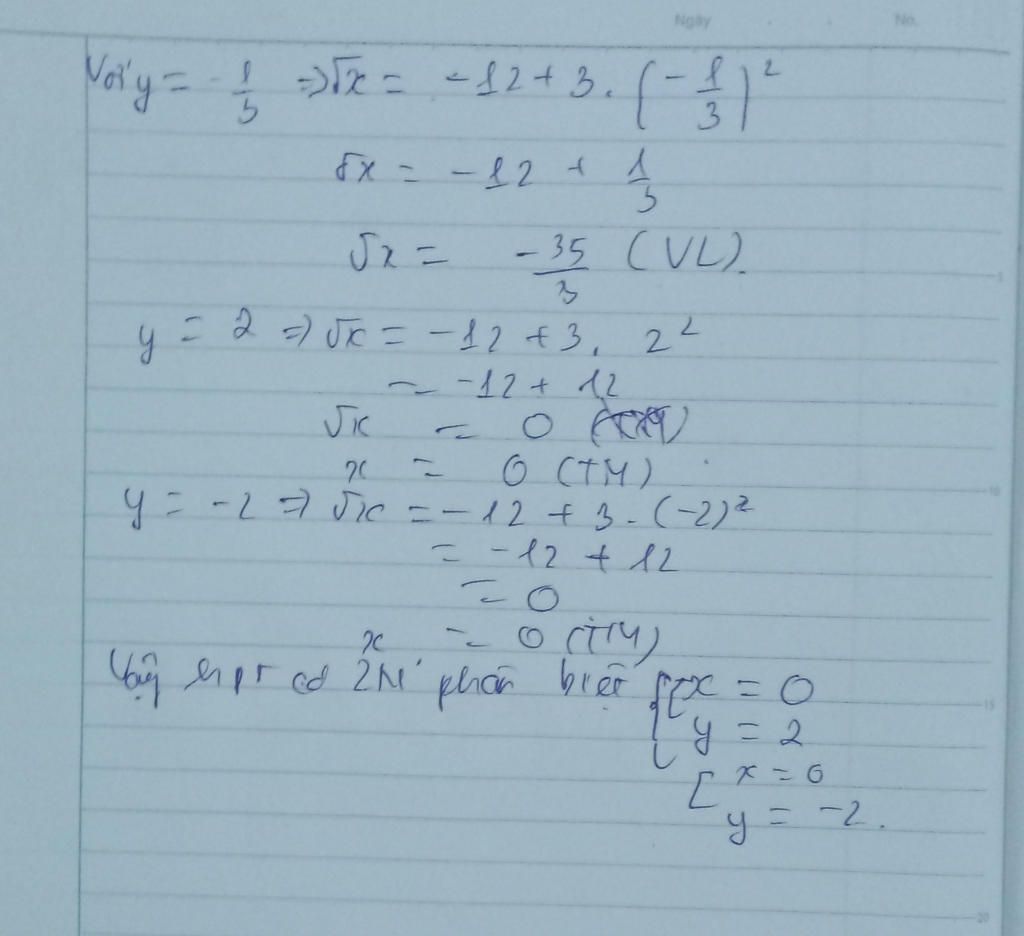 Ngày No.
Với y = -1/3 => √x = -12 + 3. (-1/3)²
√x = -12 + 1/3
√x = -35/3 (VL).
y = 2 => √x = -12 + 3. 2²
= -12 + 12
√x = 0
x = 0 (TM)
y = -2 => √x = -12 + 3. (-2)²
= -12 + 12
= 0
x = 0 (TM)
Vậy hpt có 2N' phân biệt { [ x = 0
y = 2
[ x = 0
y = -2.
5
10
15
20